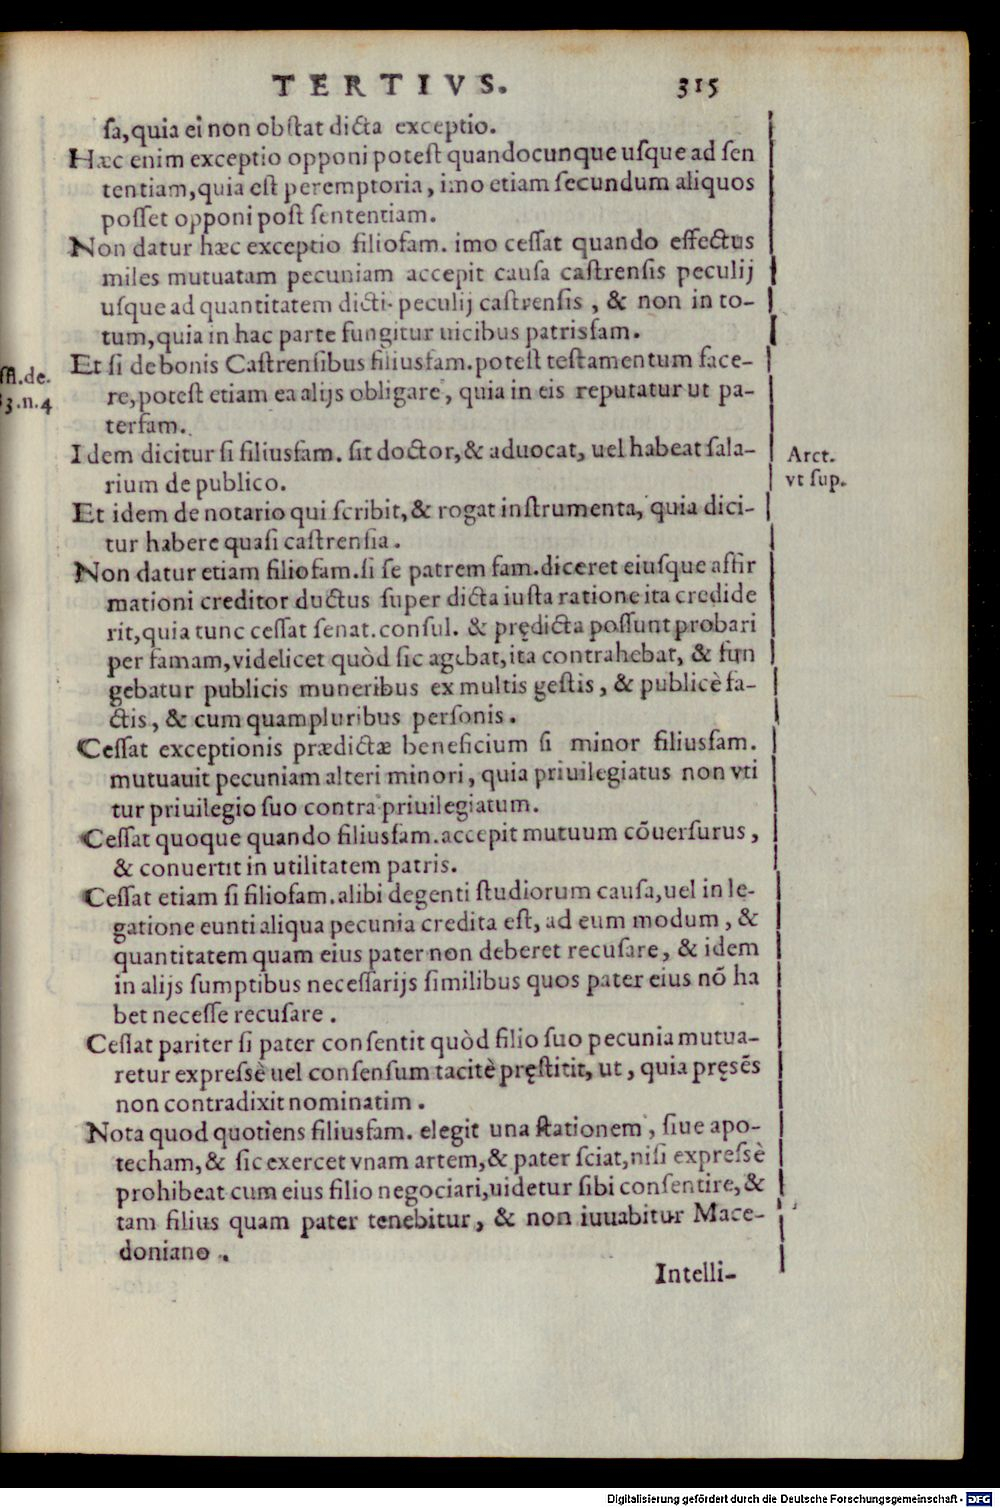 TERTIVS. 315
sa, quia ei non obstat dicta exceptio.
Hæc enim exceptio opponi potest quandocunque usque ad sen
tentiam, quia est peremptoria, imo etiam secundum aliquos
posset opponi post sententiam.
Non datur hæc exceptio filiofam. imo cessat quando effectus
miles mutuatam pecuniam accepit causa castrensis peculij
usque ad quantitatem dicti peculij castrensis, & non in to-
tum, quia in hac parte fungitur uicibus patrisfam.
Et si de bonis Castrensibus filiusfam. potest testamentum face-
re, potest etiam ea alijs obligare, quia in eis reputatur ut pa-
terfam.
ffi. de.
3. n. 4
Idem dicitur si filiusfam. sit doctor, & aduocat, uel habeat sala-
rium de publico.
Arct.
vt sup.
Et idem de notario qui scribit, & rogat instrumenta, quia dici-
tur habere quasi castrensia.
Non datur etiam filiofam. si se patrem fam. diceret eiusque affir
mationi creditor ductus super dicta iusta ratione ita credide
rit, quia tunc cessat senat. consul. & prędicta possunt probari
per famam, videlicet quòd sic agebat, ita contrahebat, & fun
gebatur publicis muneribus ex multis gestis, & publicè fa-
ctis, & cum quampluribus personis.
Cessat exceptionis prædictæ beneficium si minor filiusfam.
mutuauit pecuniam alteri minori, quia priuilegiatus non vti
tur priuilegio suo contra priuilegiatum.
Cessat quoque quando filiusfam. accepit mutuum cõuersurus,
& conuertit in utilitatem patris.
Cessat etiam si filiofam. alibi degenti studiorum causa, uel in le-
gatione eunti aliqua pecunia credita est, ad eum modum, &
quantitatem quam eius pater non deberet recusare, & idem
in alijs sumptibus necessarijs similibus quos pater eius nõ ha
bet necesse recusare.
Cessat pariter si pater consentit quòd filio suo pecunia mutua-
retur expressè uel consensum tacitè pręstitit, ut, quia pręsẽs
non contradixit nominatim.
Nota quod quotiens filiusfam. elegit una stationem, siue apo-
techam, & sic exercet vnam artem, & pater sciat, nisi expressè
prohibeat cum eius filio negociari, uidetur sibi consentire, &
tam filius quam pater tenebitur, & non iuuabitur Mace-
doniano.
Intelli-
Digitalisierung gefördert durch die Deutsche Forschungsgemeinschaft - DFG